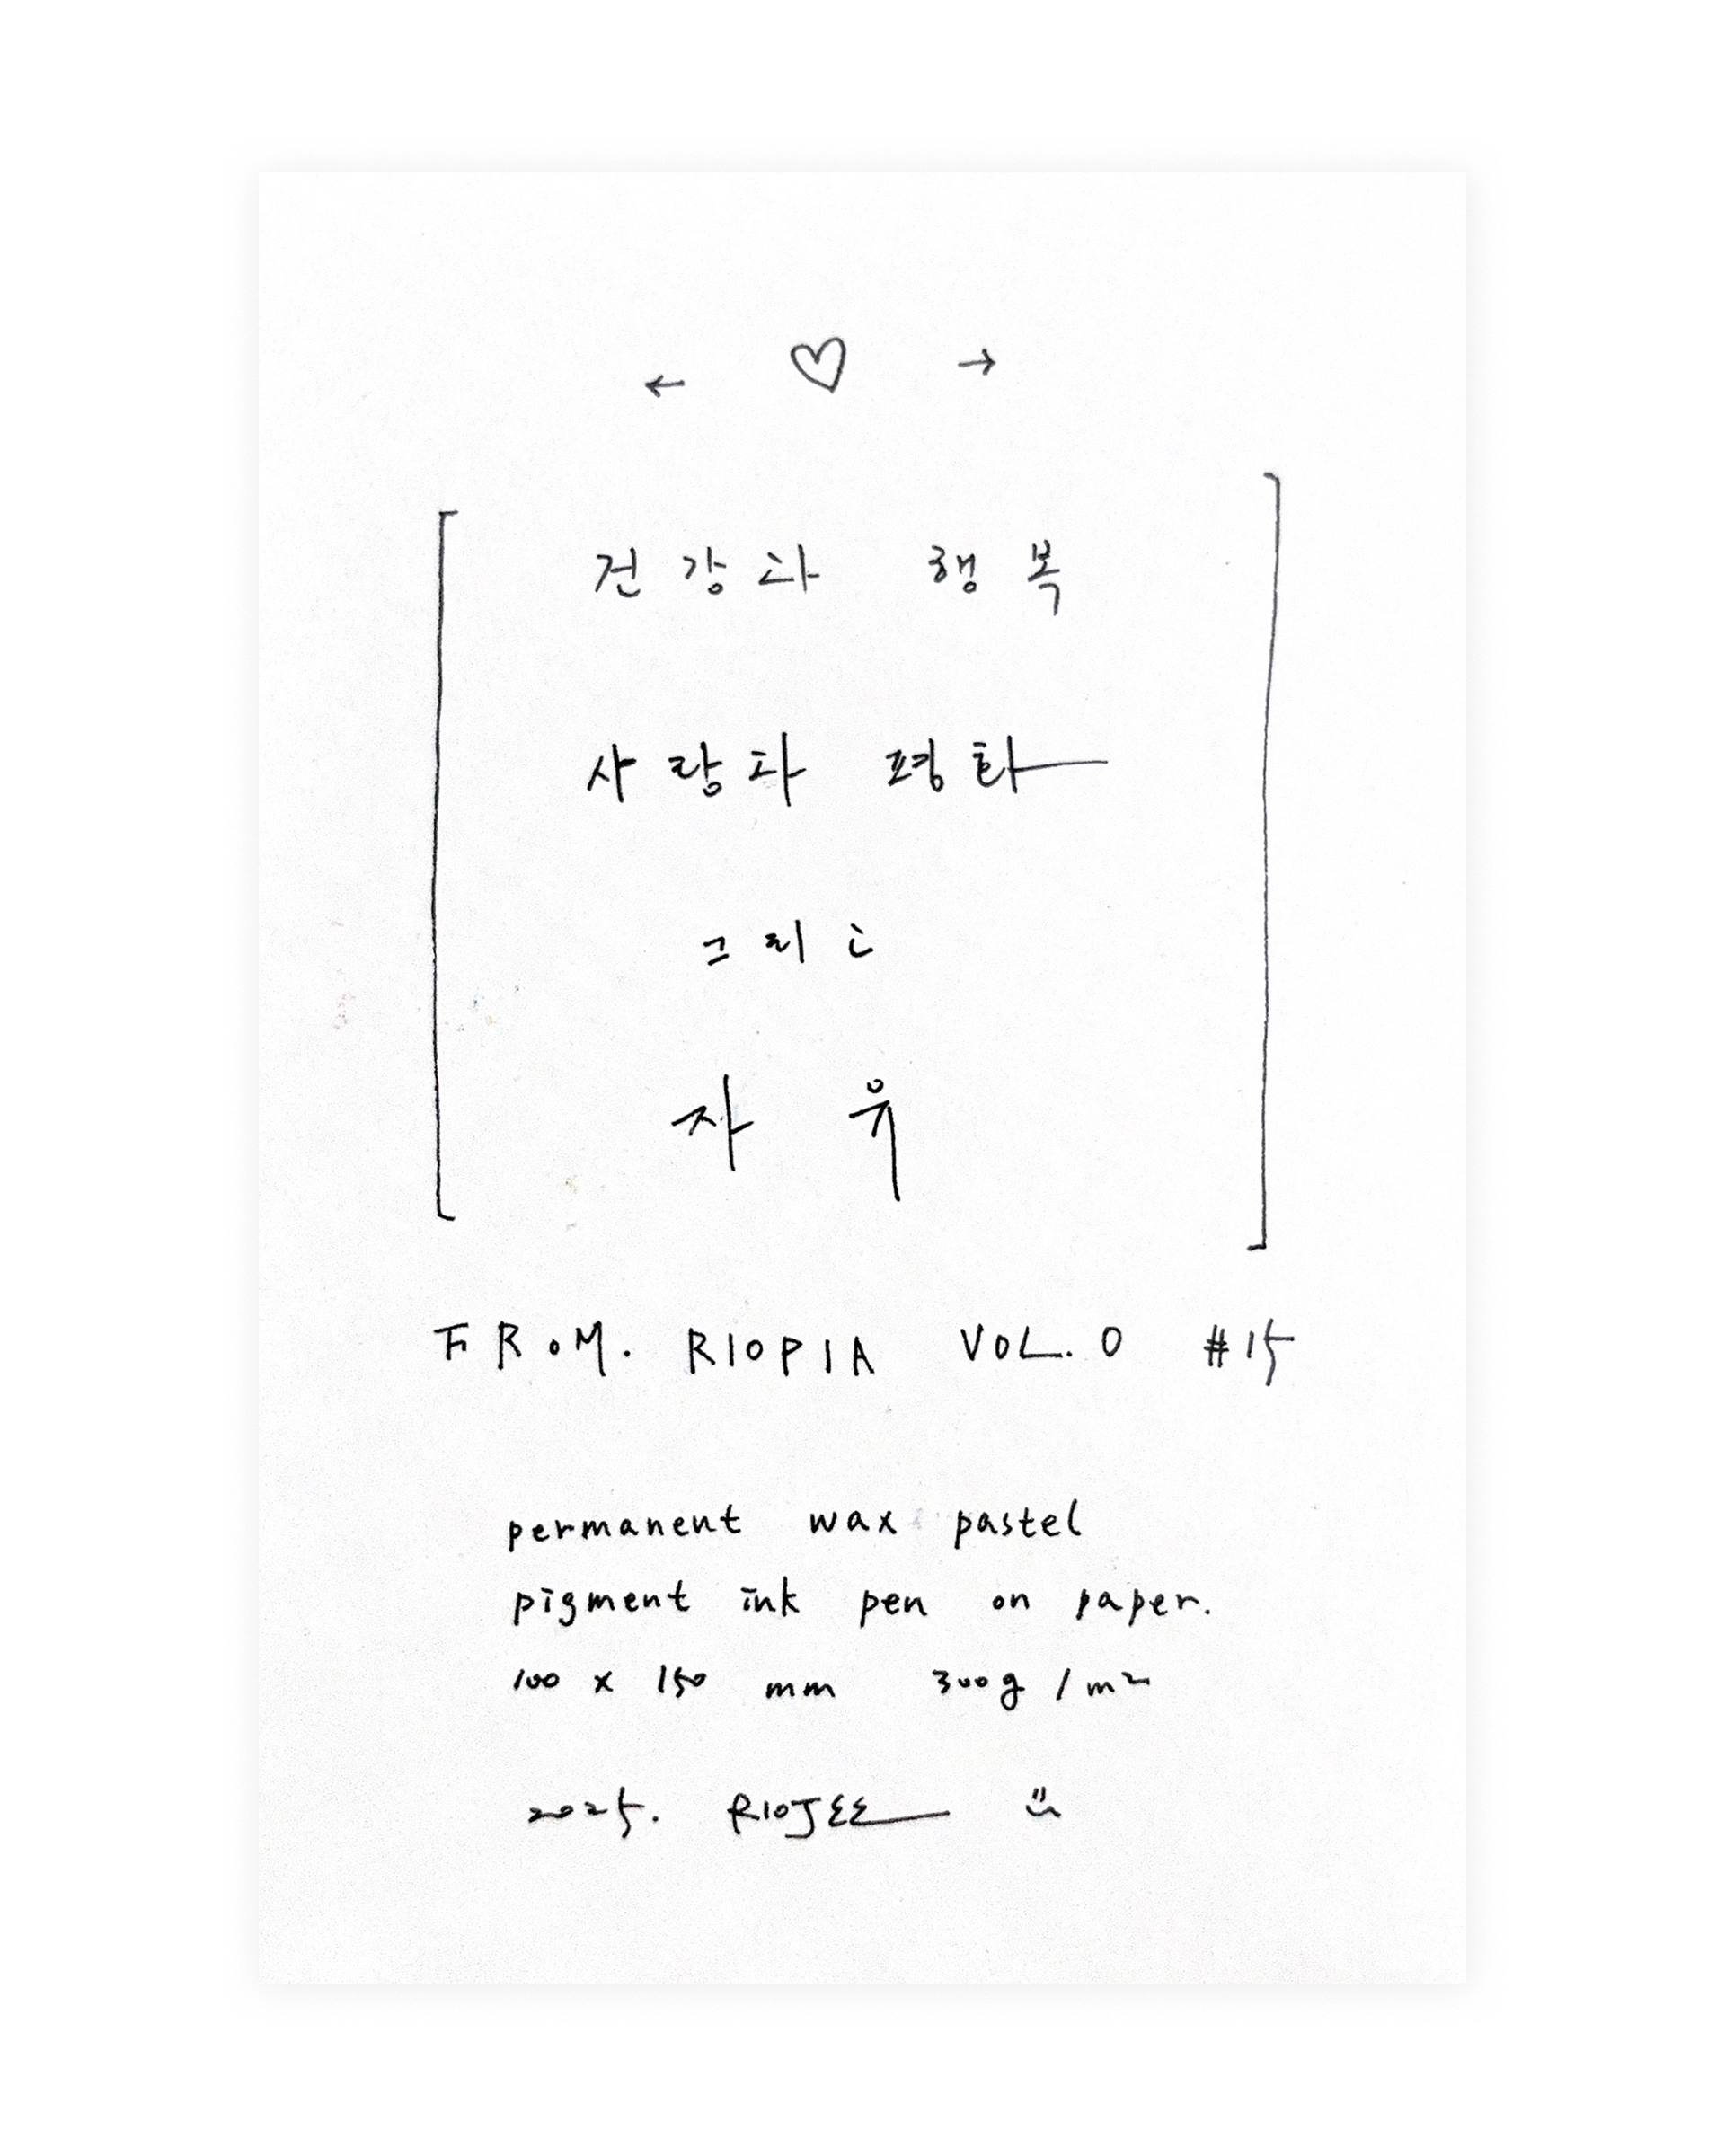 ← ♡ →
건강과 행복
사랑과 평화
그리고
자유
FROM. RIOPIA VOL. 0 #15
permanent wax pastel
pigment ink pen on paper.
100 x 150 mm 300g / m2
2025. RIOJEE